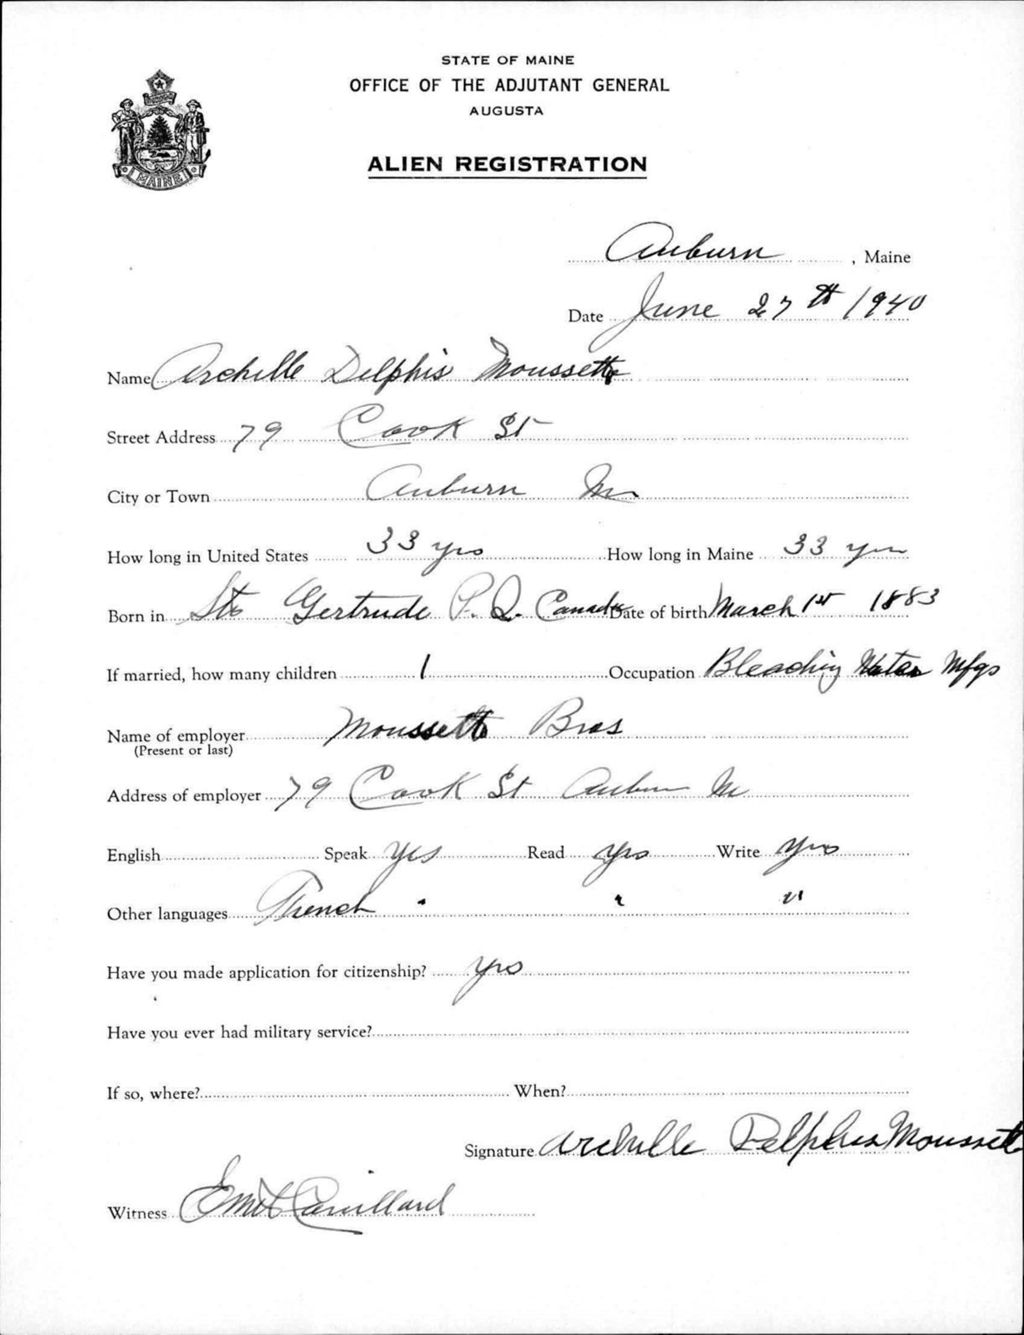 STATE OF MAINE
OFFICE OF THE ADJUTANT GENERAL
AUGUSTA
MAINE
ALIEN REGISTRATION
Auburn, Maine
Date June 27th 1940
Name Archille Delphis Moussette
Street Address 79 Cook St
City or Town Auburn Me
How long in United States 33 yrs How long in Maine 33 yrs
Born in Ste Gertrude P. Q. Canada Date of birth March 1st 1883
If married, how many children 1 Occupation Bleaching Water Mfgs
Name of employer Moussette Bros
(Present or last)
Address of employer 79 Cook St Auburn Me
English Speak Yes Read Yes Write Yes
Other languages French " " "
Have you made application for citizenship? Yes
Have you ever had military service?
If so, where? When?
Signature Archille Delphis Moussette
Witness